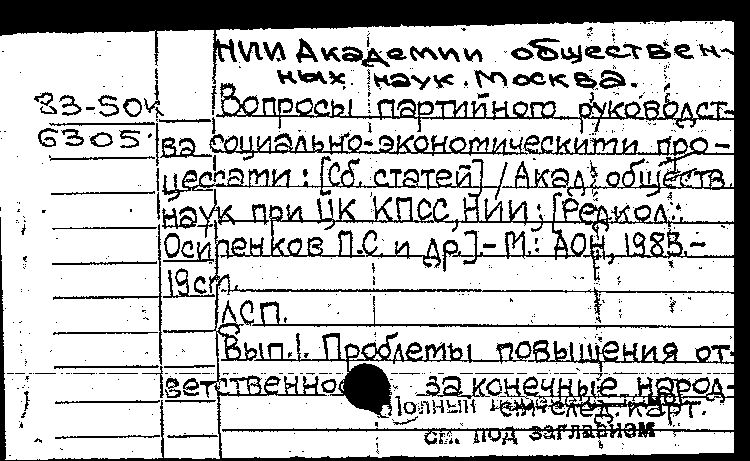 НИИ Академии обществен-
ных наук. Москва.
83-50к Вопросы партийного руководст-
6305 ва социально-экономическими про-
цессами: [Сб. статей] / Акад. обществ.
наук при ЦК КПСС, НИИ; [Редкол.:
Осипенков П.С. и др.].- М.: АОН, 1983.-
19см.
ДСП.
Вып.1. Проблемы повышения от-
ветственнос за конечные народ-
см. след. карт.
Полный
см. под заглавием